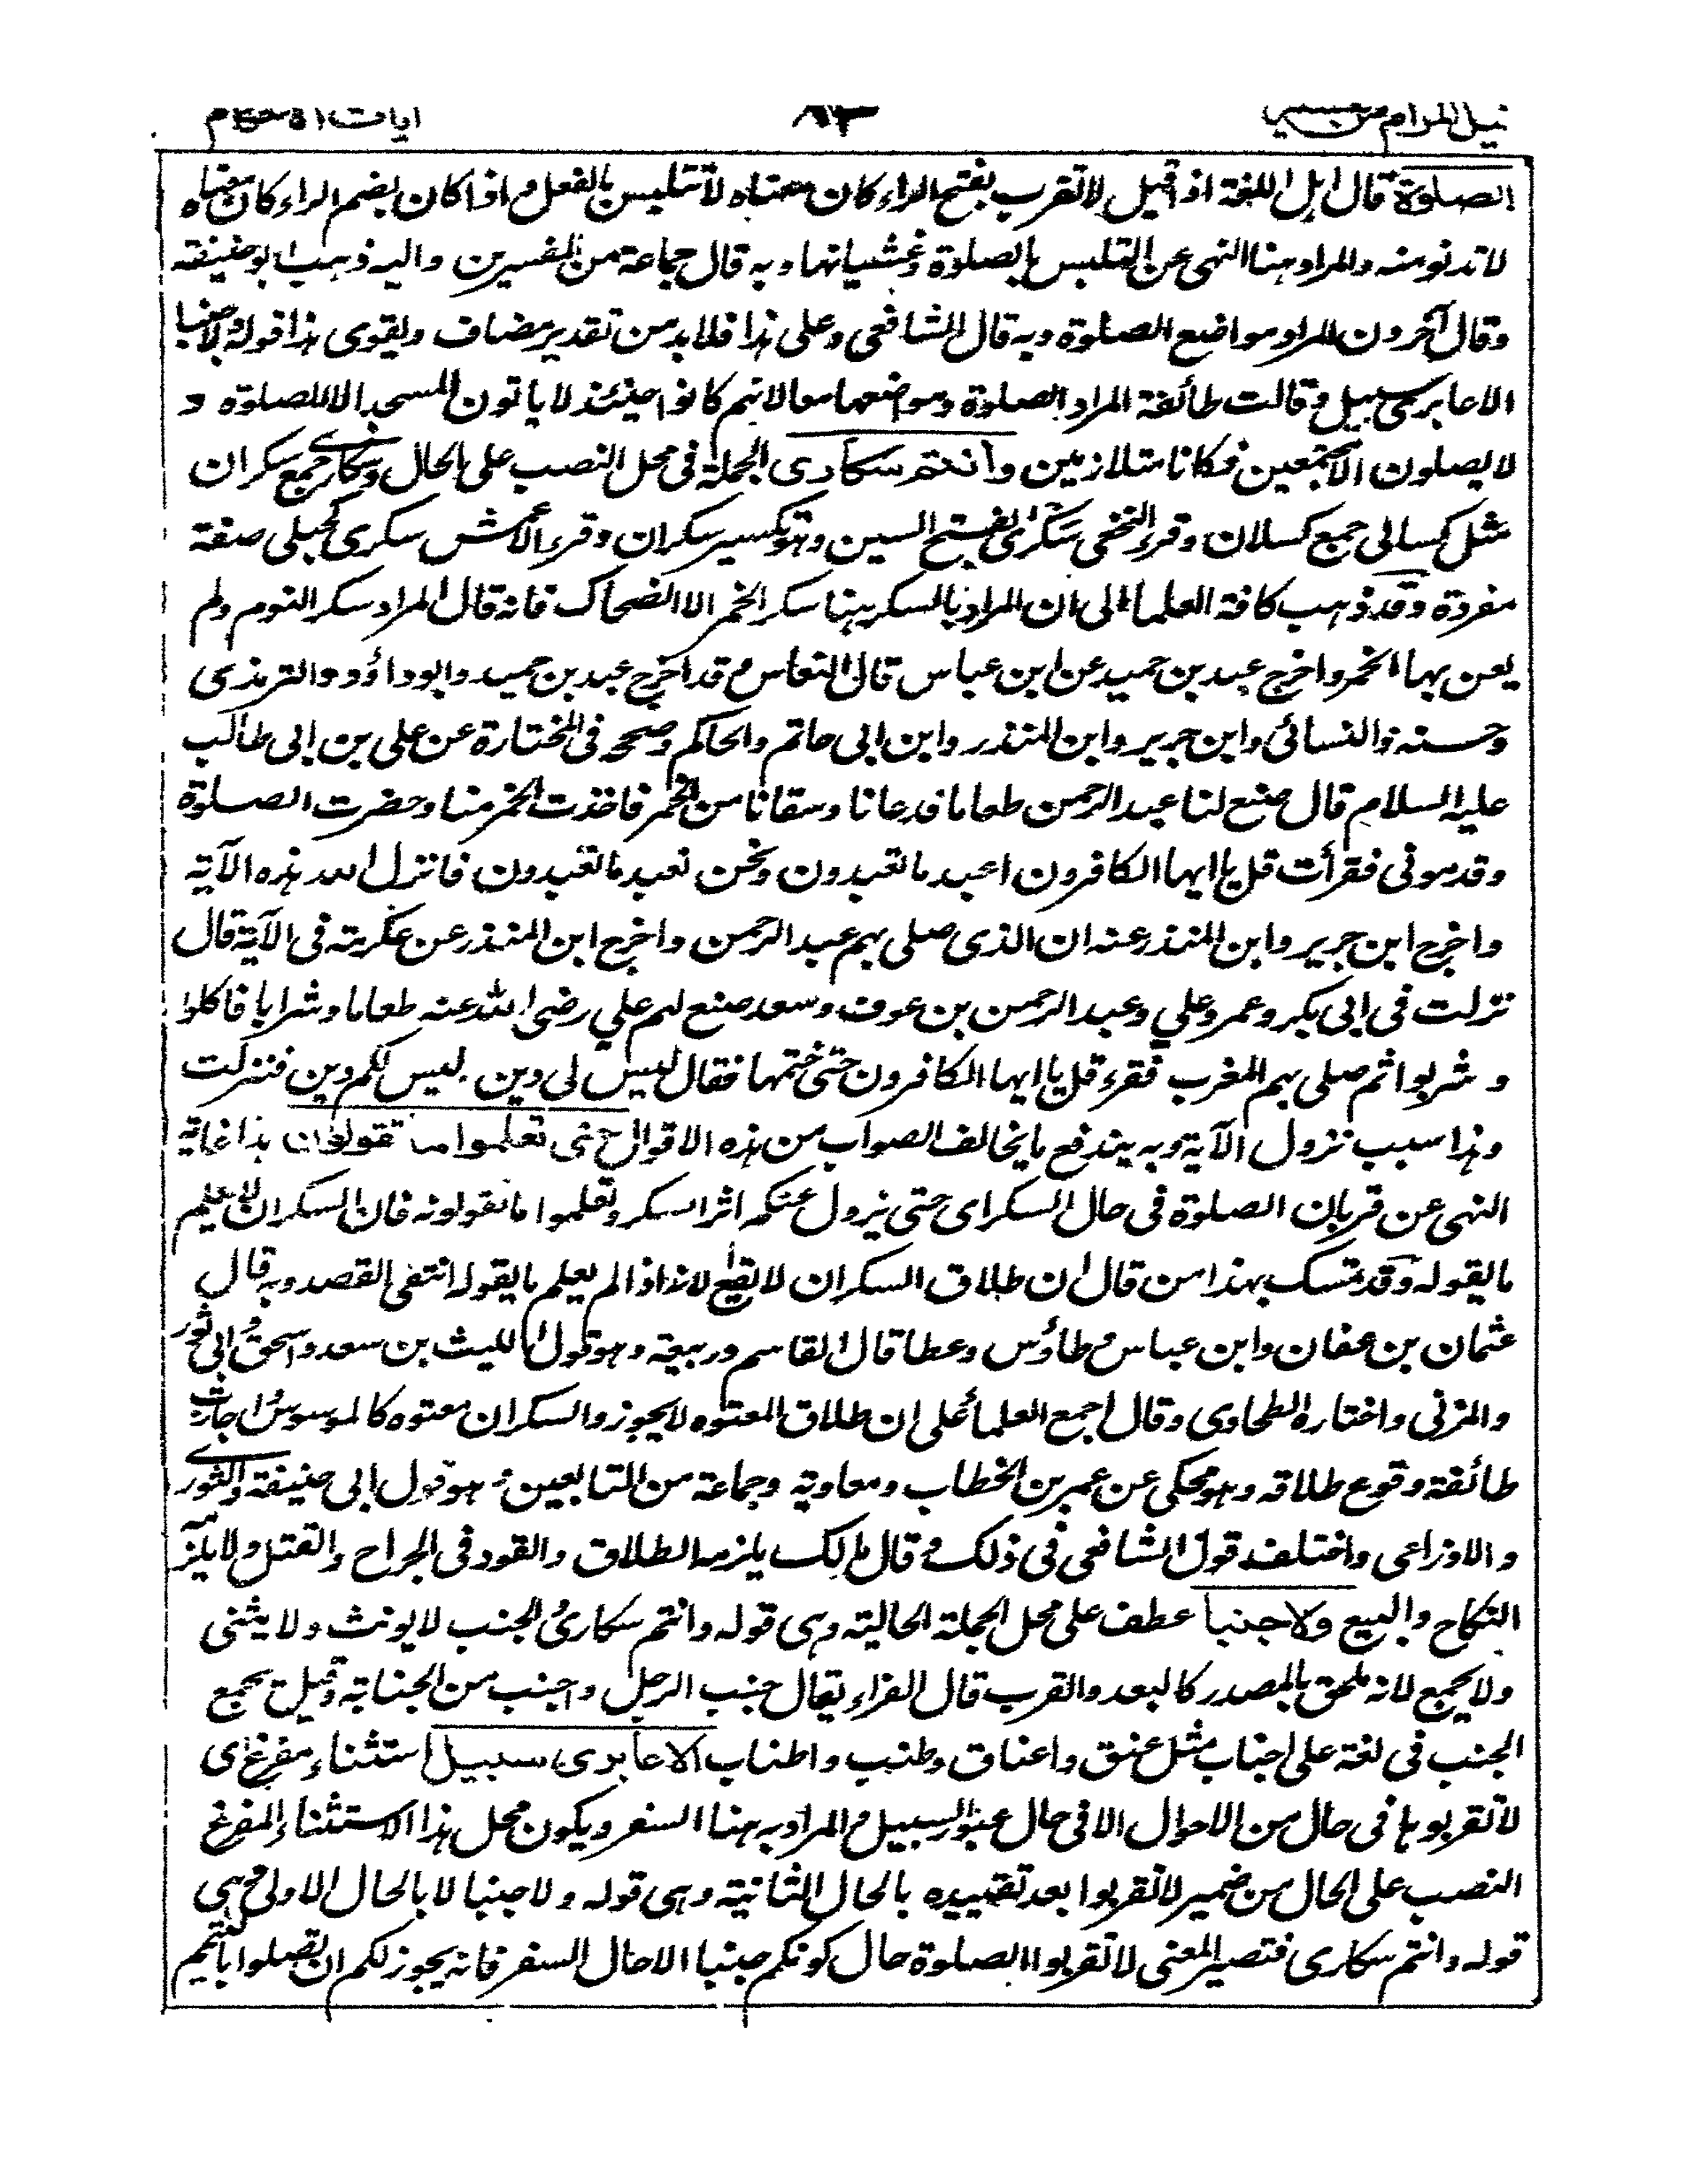 نيل المرام من تفسير ٨٣ ايات الاحكام
الصلوة قال اہل اللغة اذا قيل لا تقرب بفتح الراء كان معناه لا تتلبس بالفعل و اذا كان بضم الراء كان معناه
لا تدنو منه والمراد ہنا النہى عن التلبس بالصلوة وغشيانہا وبہ قال جماعة من المفسرين واليہ ذہب ابو حنيفة
وقال آخرون المراد مواضع الصلوة وبہ قال الشافعى وعلى ہذا فلا بد من تقدير مضاف ويقوى ہذا قولہ ولا جنبا
الا عابرى سبيل وقالت طائفة المراد الصلوة ومواضعہا معا لانہم كانوا حينئذ لا ياتون المسجد الا للصلوة و
لا يصلون الا مجتمعين فكانا متلازمين وانتم سكارى الجملة فى محل النصب على الحال وسكارى جمع سكران
مثل كسالى جمع كسلان وقرء النخعى سَكْرٰى بفتح السين وہو تكسير سكران وقرء الاعمش سكرى كحبلى صفة
مفردة وقد ذہب كافة العلماء الى ان المراد بالسكر ہنا سكر الخمر الا الضحاك فانه قال المراد سكر النوم ولم
يعن بہا الخمر واخرج عبد بن حميد عن ابن عباس قال النعاس وقد اخرج عبد بن حميد وابو داؤد والترمذى
وحسنه والنسائى وابن جرير وابن المنذر وابن ابى حاتم والحاكم وصححہ فى المختارة عن على بن ابى طالب
عليه السلام قال صنع لنا عبد الرحمن طعاما فدعانا وسقانا من الخمر فاخذت الخمر منا وحضرت الصلوة
وقدمونى فقرأت قل يا ايہا الكافرون اعبد ما تعبدون ونحن نعبد ما تعبدون فانزل اللہ ہذہ الآية
واخرج ابن جرير وابن المنذر عنہ ان الذى صلى بہم عبد الرحمن واخرج ابن المنذر عن عكرمة فى الآية قال
نزلت فى ابى بكر وعمر وعلي وعبد الرحمن بن عوف وسعد صنع لہم علي رضى اللہ عنہ طعاما وشرابا فاكلوا
و شربوا ثم صلى بہم المغرب فقرء قل يا ايہا الكافرون حتى ختمہا فقال ليس لى دين ليس لكم دين فنزلت
وہذا سبب نزول الآية وبہ يندفع ما يخالف الصواب من ہذہ الاقوال حتى تعلموا ما تقولون ہذا غاية
النہى عن قربان الصلوة فى حال السكر اى حتى يزول عنكم اثر السكر وتعلموا ما تقولونہ فان السكران لا يعلم
ما يقولہ وقد تمسك بہذا من قال ان طلاق السكران لا يقع لانہ اذا لم يعلم ما يقولہ انتفى القصد وبہ قال
عثمان بن عفان وابن عباس وطاؤس وعطا قال القاسم وربيعة وہو قول الليث بن سعد واسحٰق وابى ثور
والمزنى واختارہ الطحاوى وقال اجمع العلماء على ان طلاق المعتوہ لا يجوز والسكران معتوہ كالموسوس واجازت
طائفة وقوع طلاقہ وہو محكى عن عمر بن الخطاب ومعاوية وجماعة من التابعين وہو قول ابى حنيفة والثورى
والاوزاعى واختلف قول الشافعى فى ذلك وقال مالك يلزمہ الطلاق والقود فى الجراح والقتل ولا يلزمہ
النكاح والبيع ولا جنبا عطف على محل الجملة الحالية وہى قولہ وانتم سكارىٰ الجنب لا يونث ولا يثنى
ولا يجمع لانہ ملحق بالمصدر كالبعد والقرب قال الفراء يقال جنب الرجل واجنب من الجنابة وقيل يجمع
الجنب فى لغة على اجناب مثل عنق واعناق وطنب واطناب الا عابرى سبيل استثناء مفرغ اى
لا تقربوہا فى حال من الاحوال الا فى حال عبور السبيل والمراد بہ ہنا السفر ويكون محل ہذا الاستثناء المفرغ
النصب على الحال من ضمير لا تقربوا بعد تقييدہ بالحال الثانية وہى قولہ ولا جنبا لا بالحال الاولى وہى
قولہ وانتم سكارى فتصير المعنى لا تقربوا الصلوة حال كونكم جنبا الا حال السفر فانہ يجوز لكم ان تصلوا بالتيمم